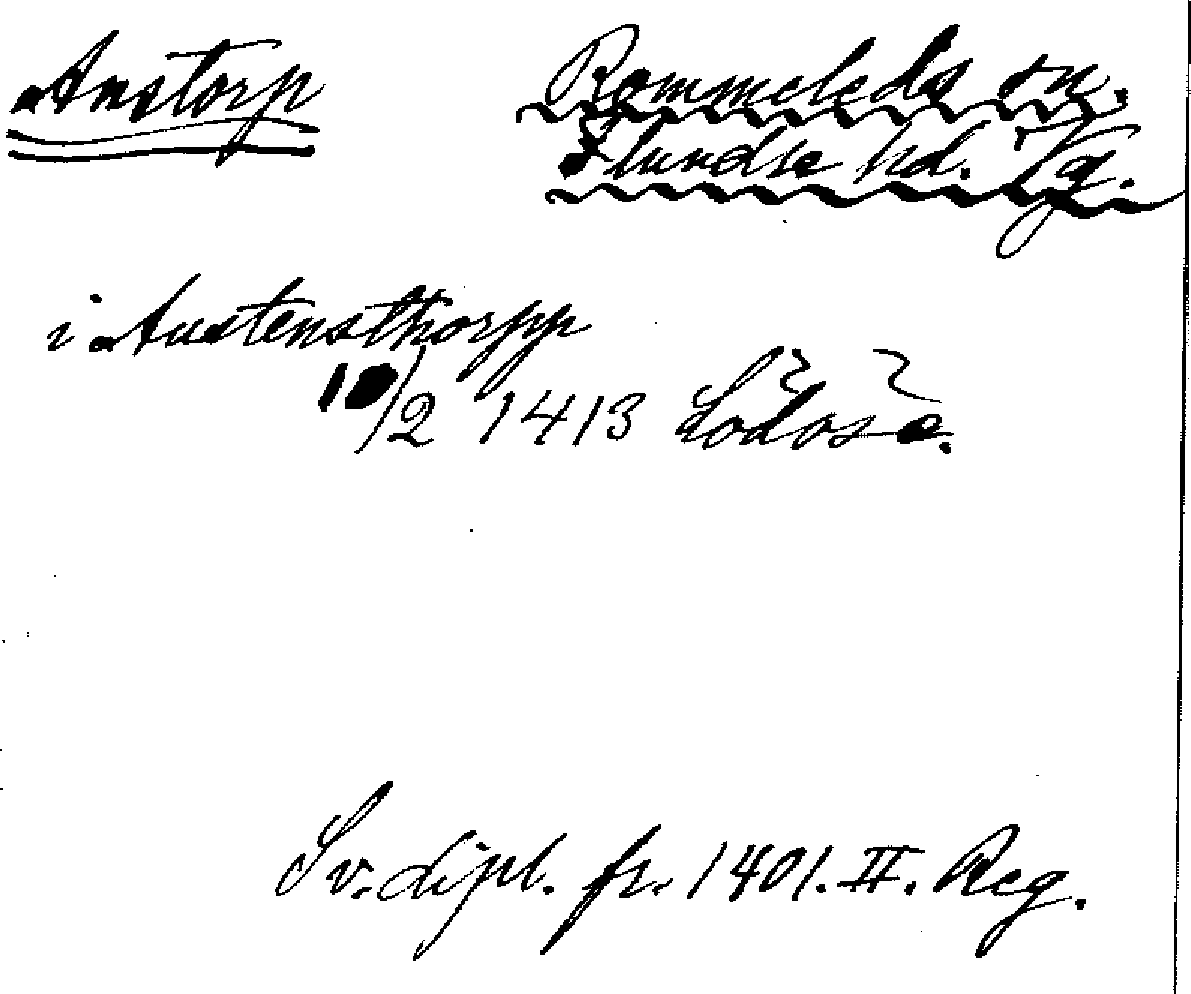 Anstorp
Rommeleds sn.
Flundre hd. Vg.
i Austensthorpp
10/2 1413 Lödöse.
Sv. dipl. fr. 1401. II. Reg.